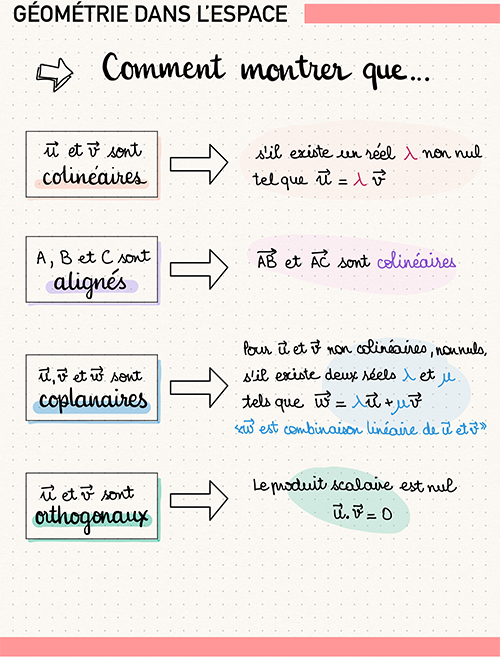 GÉOMÉTRIE DANS L'ESPACE
Comment montrer que...
u⃗ et v⃗ sont
colinéaires
s'il existe un réel λ non nul
tel que u⃗ = λ v⃗
A, B et C sont
alignés
AB⃗ et AC⃗ sont colinéaires
u⃗, v⃗ et w⃗ sont
coplanaires
Pour u⃗ et v⃗ non colinéaires, non nuls,
s'il existe deux réels λ et μ
tels que w⃗ = λu⃗ + μv⃗
«w⃗ est combinaison linéaire de u⃗ et v⃗»
u⃗ et v⃗ sont
orthogonaux
Le produit scalaire est nul
u⃗.v⃗ = 0